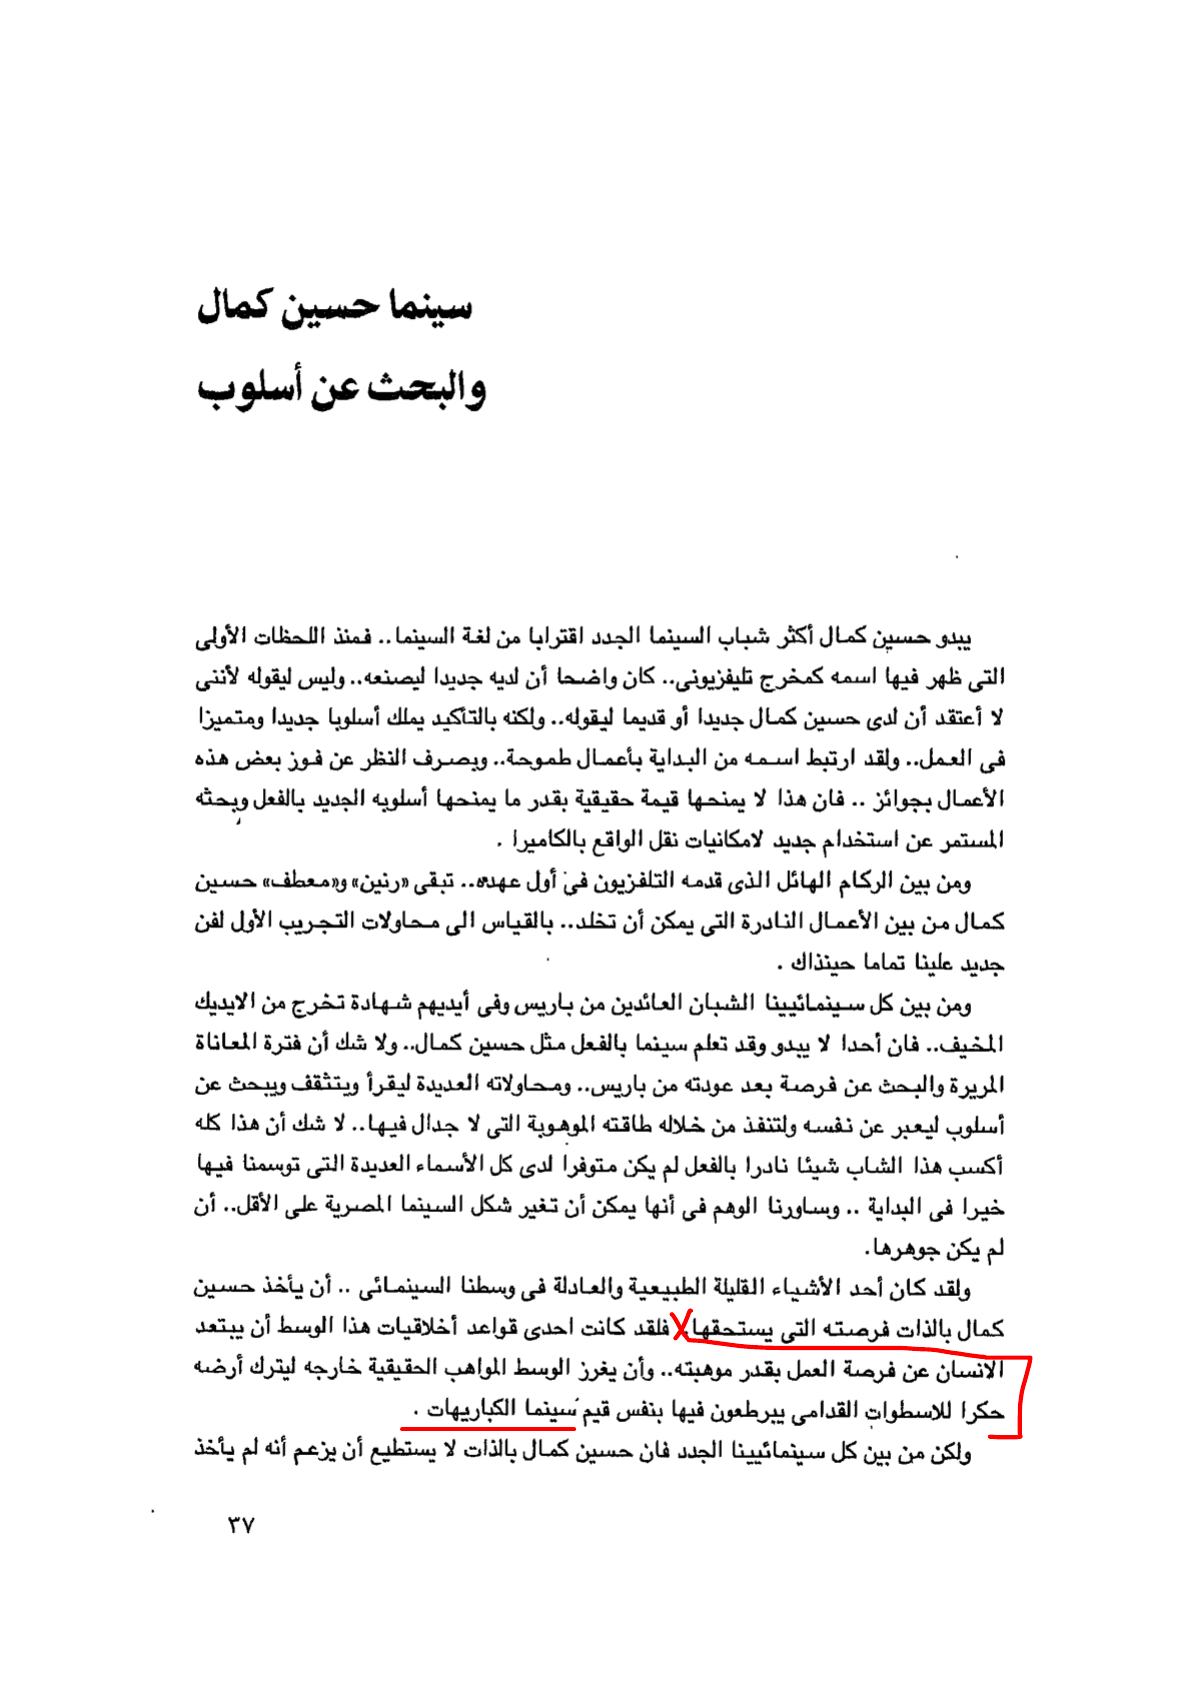 سينما حسين كمال
والبحث عن أسلوب
يبدو حسين كمال أكثر شباب السينما الجدد اقترابا من لغة السينما.. فمنذ اللحظات الأولى
التى ظهر فيها اسمه كمخرج تليفزيونى.. كان واضحا أن لديه جديدا ليصنعه.. وليس ليقوله لأننى
لا أعتقد أن لدى حسين كمال جديدا أو قديما ليقوله.. ولكنه بالتأكيد يملك أسلوبا جديدا ومتميزا
فى العمل.. ولقد ارتبط اسمه من البداية بأعمال طموحة.. وبصرف النظر عن فوز بعض هذه
الأعمال بجوائز .. فان هذا لا يمنحها قيمة حقيقية بقدر ما يمنحها أسلوبه الجديد بالفعل وبحثه
المستمر عن استخدام جديد لامكانيات نقل الواقع بالكاميرا .
ومن بين الركام الهائل الذى قدمه التلفزيون فى أول عهده.. تبقى «رنين» و«معطف» حسين
كمال من بين الأعمال النادرة التى يمكن أن تخلد.. بالقياس الى محاولات التجريب الأول لفن
جديد علينا تماما حينذاك .
ومن بين كل سينمائيينا الشبان العائدين من باريس وفى أيديهم شهادة تخرج من الايديك
المخيف.. فان أحدا لا يبدو وقد تعلم سينما بالفعل مثل حسين كمال.. ولا شك أن فترة المعاناة
المريرة والبحث عن فرصة بعد عودته من باريس.. ومحاولاته العديدة ليقرأ ويتثقف ويبحث عن
أسلوب ليعبر عن نفسه ولتنفذ من خلاله طاقته الموهوبة التى لا جدال فيها.. لا شك أن هذا كله
أكسب هذا الشاب شيئا نادرا بالفعل لم يكن متوفرا لدى كل الأسماء العديدة التى توسمنا فيها
خيرا فى البداية .. وساورنا الوهم فى أنها يمكن أن تغير شكل السينما المصرية على الأقل.. أن
لم يكن جوهرها.
ولقد كان أحد الأشياء القليلة الطبيعية والعادلة فى وسطنا السينمائى .. أن يأخذ حسين
كمال بالذات فرصته التى يستحقها فلقد كانت احدى قواعد أخلاقيات هذا الوسط أن يبتعد
الانسان عن فرصة العمل بقدر موهبته.. وأن يغرز الوسط المواهب الحقيقية خارجه ليترك أرضه
حكرا للاسطوات القدامى يبرطعون فيها بنفس قيم سينما الكباريهات .
ولكن من بين كل سينمائيينا الجدد فان حسين كمال بالذات لا يستطيع أن يزعم أنه لم يأخذ
٣٧